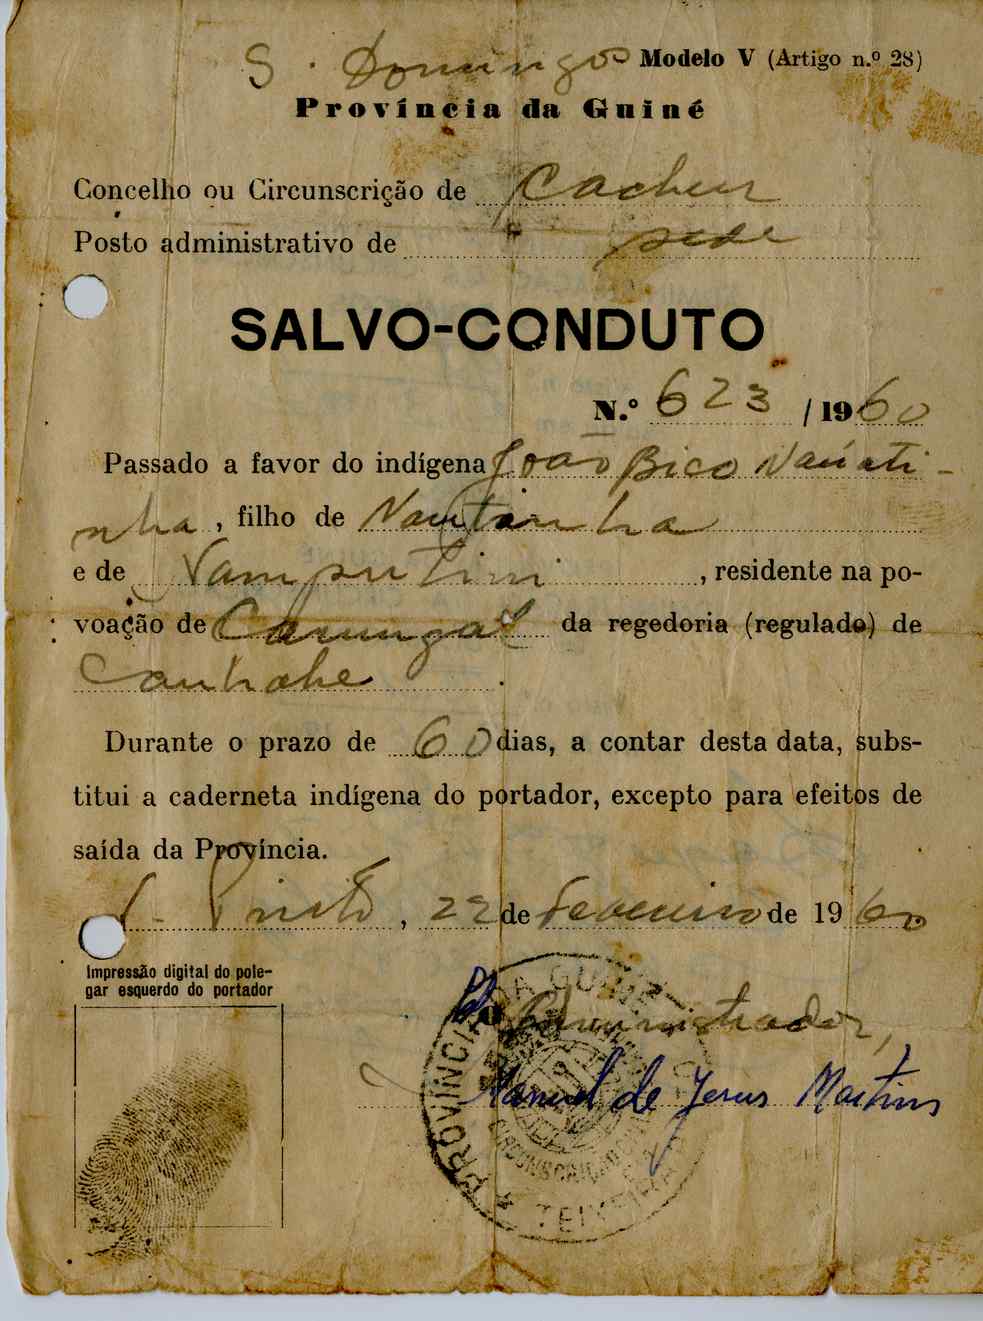 S. Domingos Modelo V (Artigo n.º 28)
Província da Guiné
Concelho ou Circunscrição de Cacheu
Posto administrativo de sede
SALVO-CONDUTO
N.º 623 / 1960
Passado a favor do indígena João Bico
, filho de
e de Vamputim, residente na po-
voação de da regedoria (regulado) de
Durante o prazo de 60 dias, a contar desta data, subs-
titui a caderneta indígena do portador, excepto para efeitos de
saída da Província.
, 22 de Fevereiro de 1960
Impressão digital do pole-
gar esquerdo do portador
Administrador,
Manuel de Jesus Martins
PROVÍNCIA DA GUINÉ
CIRCUNSCRIÇÃO